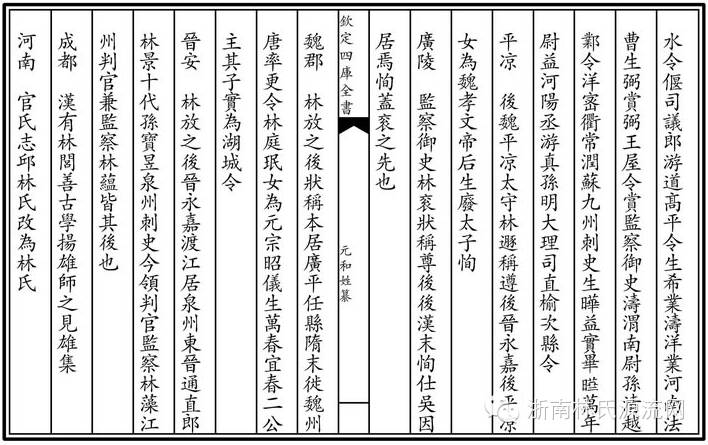 水令偃司議郎游道髙平令生希業濤洋業河南法
曹生弼賞弼王屋令賞監察御史濤渭南尉孫沛越
鄴令洋宻衢常潤蘇九州刺史生曄益實畢䀴萬年
尉益河陽丞游真孫明大理司直榆次縣令
平凉 後魏平凉太守林遯稱遵後晉永嘉後平凉
女為魏孝文帝后生廢太子恂
廣陵 監察御史林衮狀稱尊後後漢末恂仕吳因
居焉恂蓋衮之先也
欽定四庫全書
元和姓纂
魏郡 林放之後狀稱本居廣平任縣隋末徙魏州
唐率更令林庭珉女為元宗昭儀生萬春宜春二公
主其子實為湖城令
晉安 林放之後晉永嘉渡江居泉州東晉通直郎
林景十代孫寳昱泉州刺史今領判官監察林藻江
州判官兼監察林藴皆其後也
成都 漢有林閭善古學揚雄師之見雄集
河南 官氏志邱林氏改為林氏
浙南林氏源流网